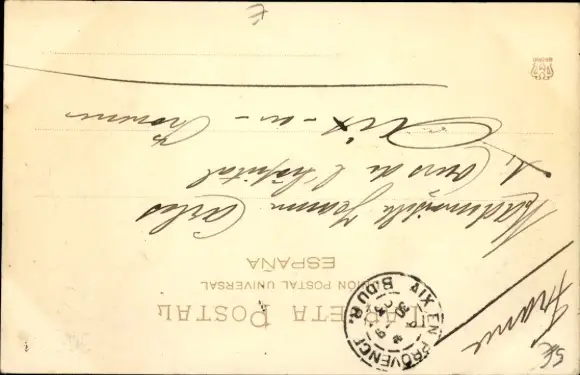 TARJETA POSTAL
UNION POSTAL UNIVERSAL
ESPAÑA
Mademoiselle Jeanne Carles
Cours de l'hôpital
Aix-en-Provence
France
AIX EN PROVENCE
B. DU R.